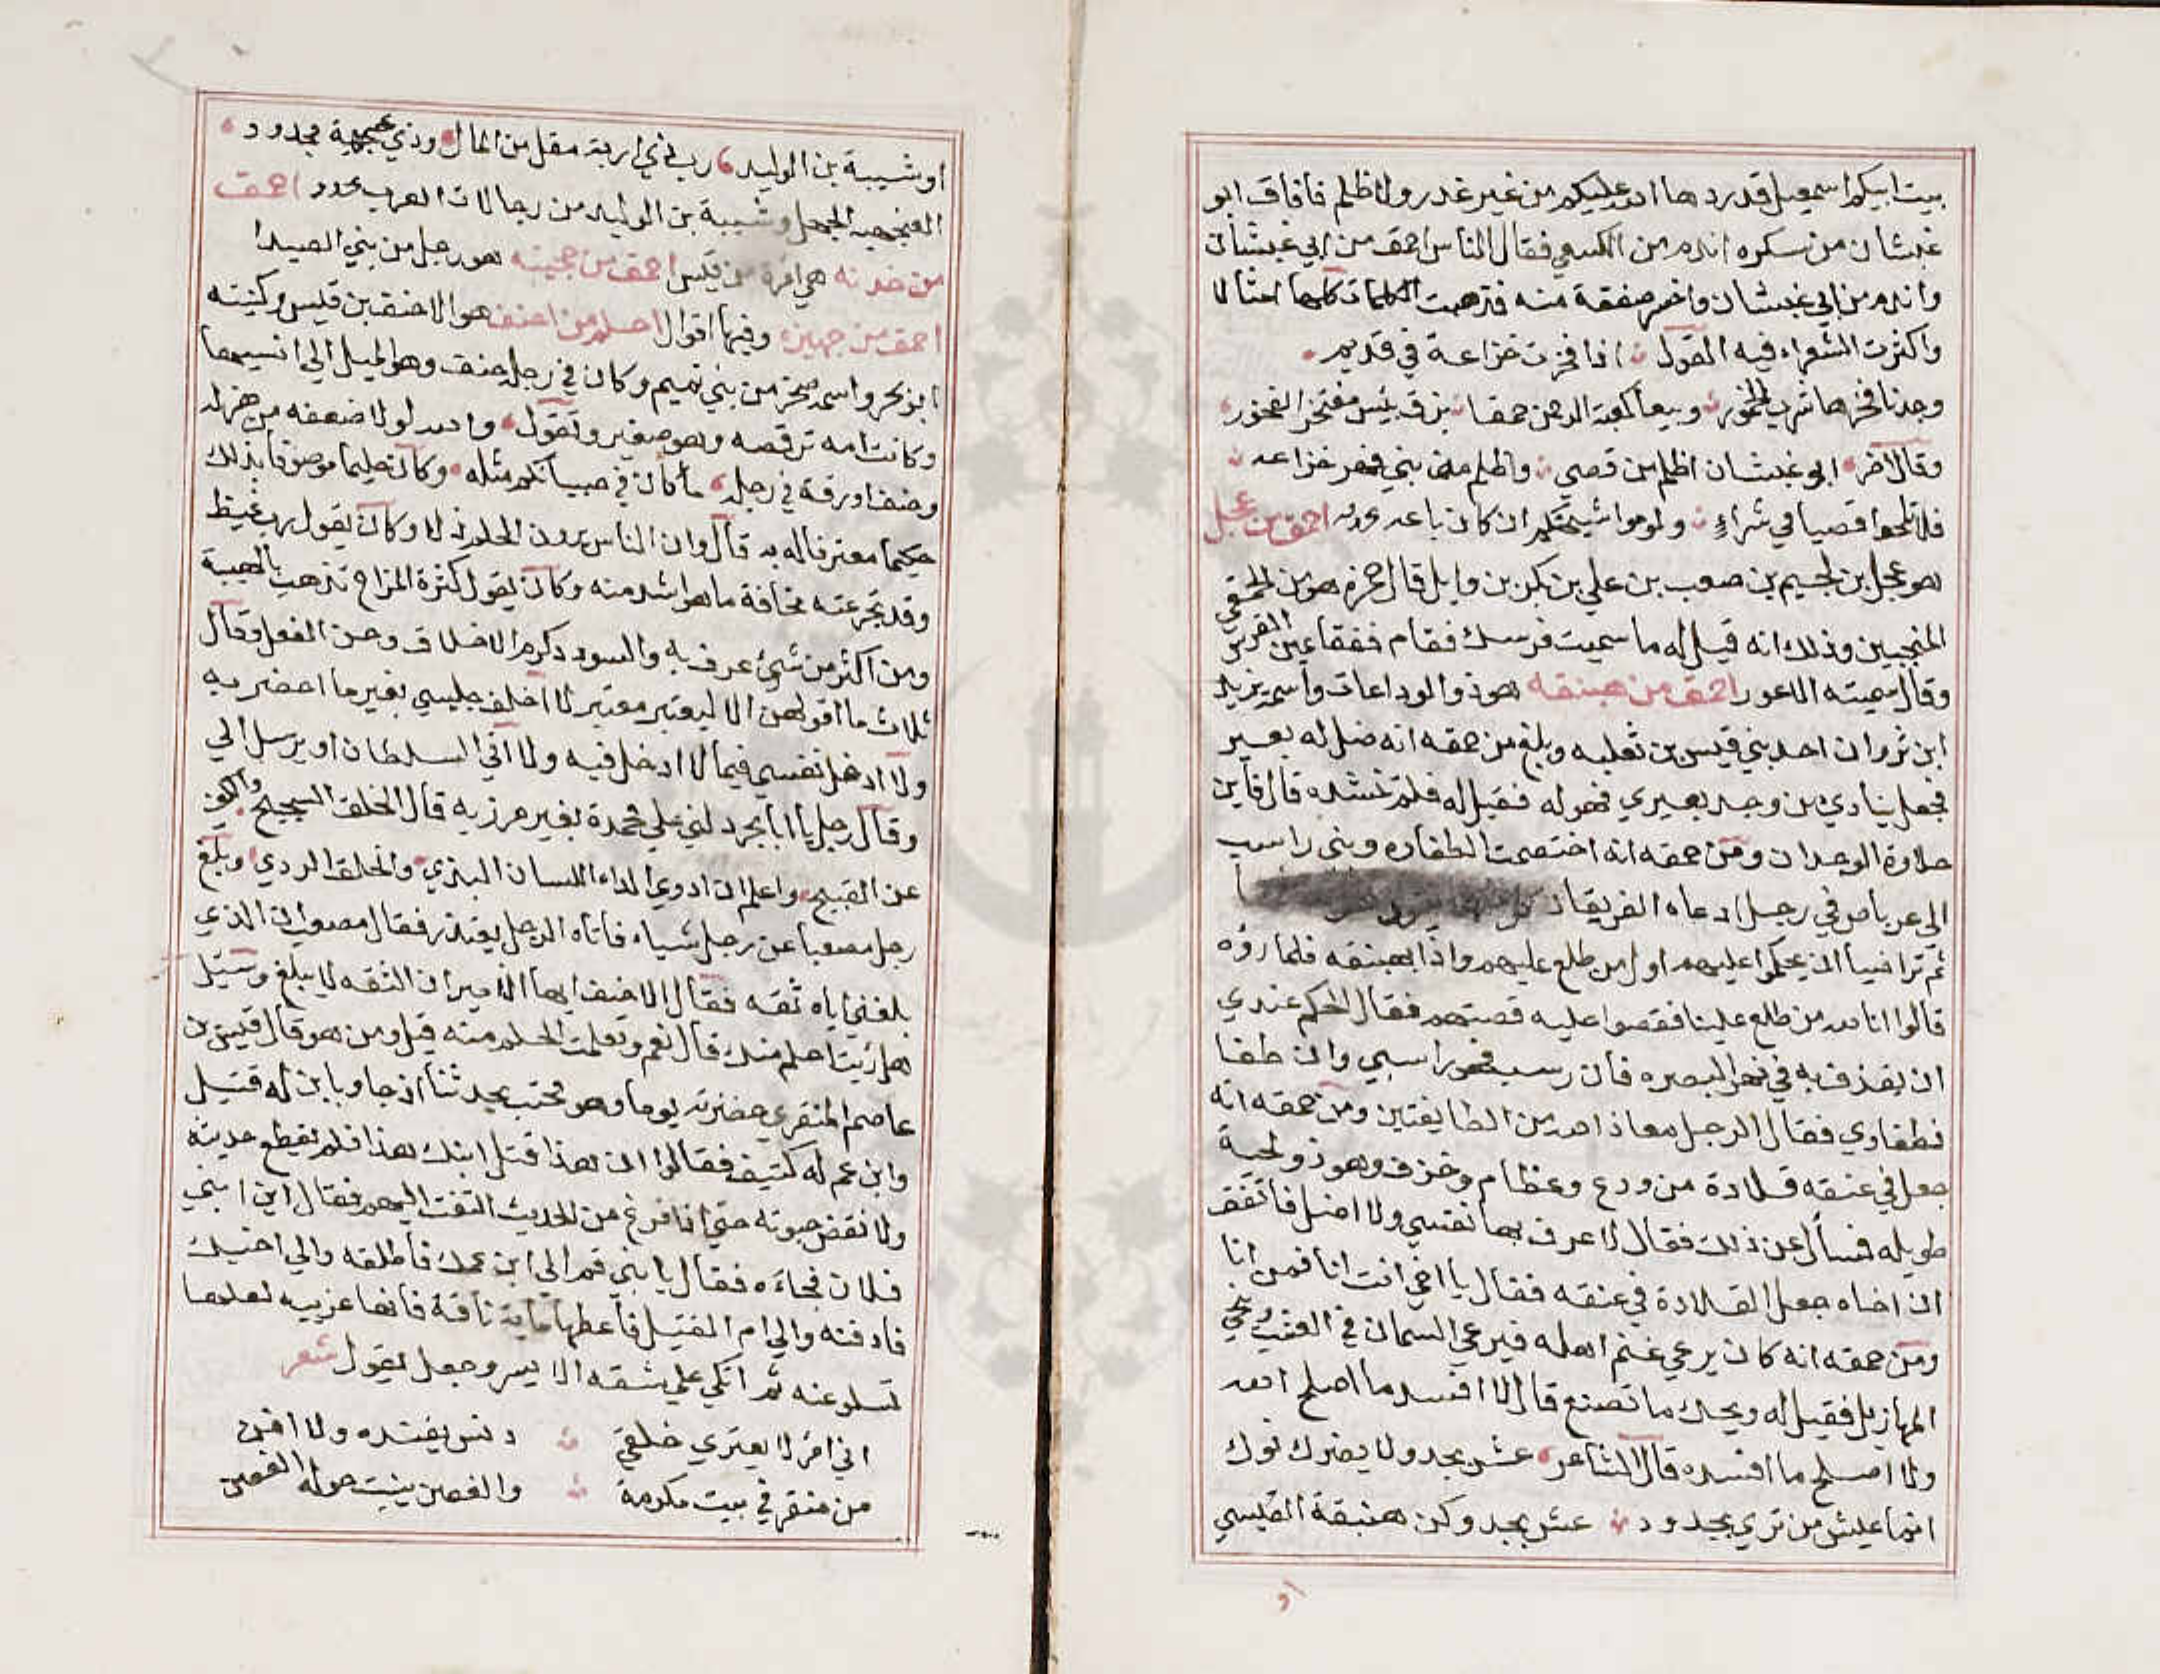 بيت ابيكم اسمعيل قدردها الله عليكم من غير غدر ولا ظلم فافاق ابو
غبشان من سكره اندم من الكسعي فقال الناس احمق من ابي غبشان
واندم من ابي غبشان واخسر صفقة منه فذهبت الكلمات كلها امثالا
واكثرت الشعراء فيه القول اذا فخرت خزاعة في قديم
وجدنا فخرها شرب الخمور وبيعا كعبة الرحمن حمقا بزق بئس مفتخر الفخور
وقال آخر ابو غبشان اظلم من قصي واظلم من بني فهر خزاعه
فلا تلحوا قصيا في شراءٍ ولوموا شيخكم ان كان باعه احمق من عجل
هو عجل بن لجيم بن صعب بن علي بن بكر بن وايل قال حمزه هو من الحمقي
المنجبين وذلك انه قيل له ما سميت فرسك فقام ففقا عين الفرس
وقال سميته الاعور احمق من هبنقه هو ذو الوداعات واسمه يزيد
ابن ثروان احد بني قيس بن ثعلبه وبلغ من حمقه انه ضل له بعير
فجعل ينادي من وجد بعيري فهو له فقيل له فلم تنشده قال فاين
حلاوة الوجدان ومن حمقه انه اختصمت الطفاوه وبني راسب
الي عرباض في رجل ادعاه الفريقان
ثم تراضيا ان يحكموا عليهم اول من طلع عليهم واذا بهبنقه فلما رؤه
قالوا انا لله من طلع علينا فقصوا عليه قصتهم فقال الحكم عندي
ان يقذف به في نهر البصره فان رسب فهو راسبي وان طفا
فطفاوي فقال الرجل معاذ الله من الطايفتين ومن حمقه انه
جعل في عنقه قلادة من ودع وعظام وخزف وهو ذو لحية
طويله فسأل عن ذلك فقال لاعرف بها نفسي ولا اضل فاتفق
ان اخاه جعل القلادة في عنقه فقال يا اخي انت انا فمن انا
ومن حمقه انه كان يرعي غنم اهله فيرعي السمان في العشب وينحي
المهازيل فقيل له ويحك ما تصنع قال لا افسد ما اصلح الله
ولا اصلح ما افسده قال الشاعر عش بجد ولا يضرك نوك
انما عيش من تري بجدود عش بجد وكن هبنقة القيسي
او
او شيبة بن الوليد رب ذي اربة مقل من المال وذي عنجهية مجدود
العنجهيه الجهل وشيبة بن الوليد من رجالات العرب احمق
من خدنه هي امرة من قيس احمق من جحينه هو رجل من بني الصيدا
احمق من جهيزه وفيها اقوال احلم من احنف هو الاحنف بن قيس وكنيته
ابو بحر واسمه صخر من بني تميم وكان في رجله حنف وهو الميل الي انسيها
وكانت امه ترقصه وهو صغير وتقول والله لولا ضعفه من هزله
وحنف او رقة في رجله ما كان في صبيانكم مثله وكان حليما موصوفا بذلك
حكيما معترفا له به قال وان الناس يرون الحلم ذلا وكان يقول رب غيظ
وقد تجرعته مخافة ما هو اشد منه وكان يقول كثرة المزاح تذهب بالهيبة
ومن اكثر من شيئ عرف به والسودد كرم الاخلاق وحسن الفعل وقال
ثلاث ما اقولهن الا ليعتبر معتبر لا اخلف جليسي بغير ما احضر به
ولا ادخل نفسي فيما لا ادخل فيه ولا اتي السلطان او يرسل الي
وقال رجل يا ابا بحر دلني علي محمدة بغير مرزيه قال الخلق السجيح والكف
عن القبيح واعلم ان ادوي الداء اللسان البذي والخلق الردي وبلغ
رجل مصعبا عن رجل شياء فاتاه الرجل يعتذر فقال مصعب ان الذي
بلغني اياه ثقه فقال الاحنف ايها الامير ان الثقه لا يبلغ وسئيل
هل رئيت احلم منك قال نعم وتعلمت الحلم منه قيل ومن هو قال قيس بن
عاصم المنقري حضرته يوما وهو محتب يحدثنا اذ جاوبا بن له قتيل
وابن عم له كتيف فقالوا ان هذا قتل ابنك هذا فلم يقطع حديثه
ولا نقض حبوته حتي اذا فرغ من الحديث التفت اليهم فقال اين ابني
فلان فجاءه فقال يا بني قم الي ابن عمك فاطلقه والي اخيك
فادفنه والي ام القتيل فأعطها ماية ناقة فانها غريبه لعلها
تسلو عنه ثم اتكي علي شقه الا يسر وجعل يقول شعر
اني امرؤ لا يعتري خلقي دنس يفنده ولا افن
من منقر في بيت مكرمة والغصن ينبت حوله الغصن